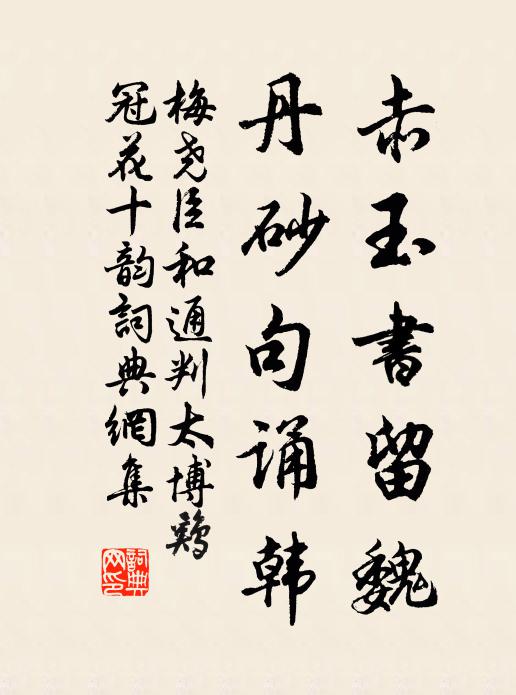 赤玉書留魏
丹砂句诵韩
梅尧臣和通判太博鸡
冠花十韵詞典網集
詞典网印